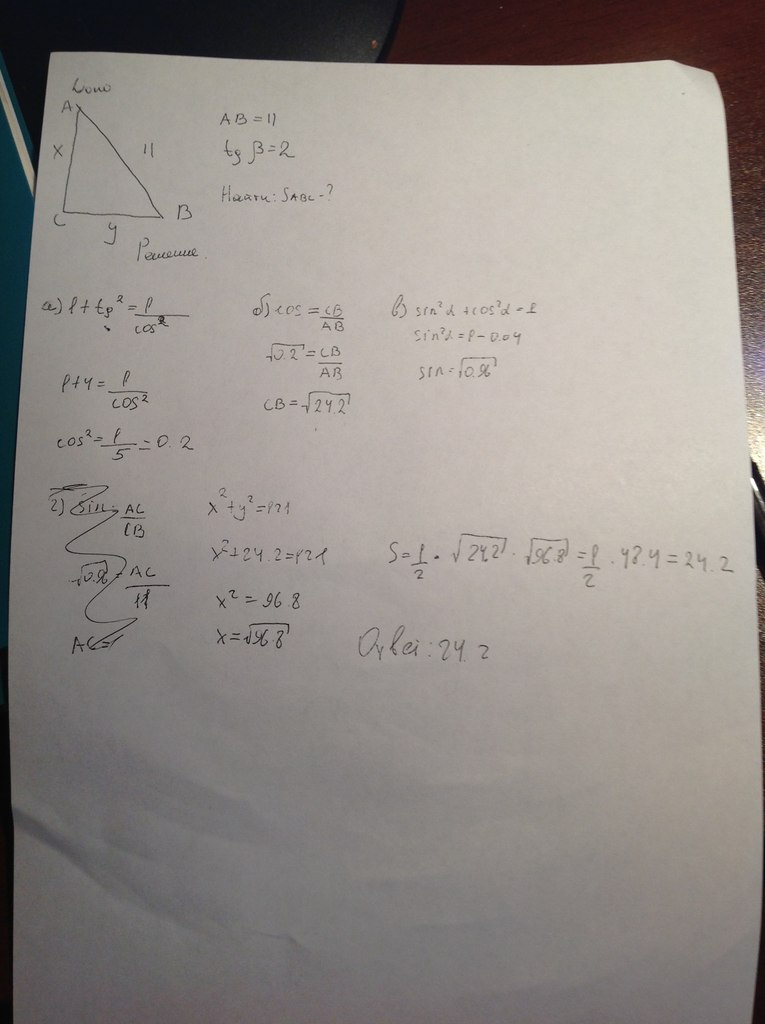 Дано
A
x
11
C
y
B
AB = 11
tg β = 2
Найти: SABC - ?
Решение.
а) 1 + tg² = 1/cos²
1 + 4 = 1/cos²
cos² = 1/5 = 0.2
б) cos = CB/AB
√0.2 = CB/AB
CB = √24.2
в) sin²α + cos²α = 1
sin²α = 1 - 0.04
sin = √0.96
2) sin = AC/CB
√0.96 = AC/11
AC =
x² + y² = 121
x² + 24.2 = 121
x² = 96.8
x = √96.8
S = 1/2 · √24.2 · √96.8 = 1/2 · 48.4 = 24.2
Ответ: 24.2